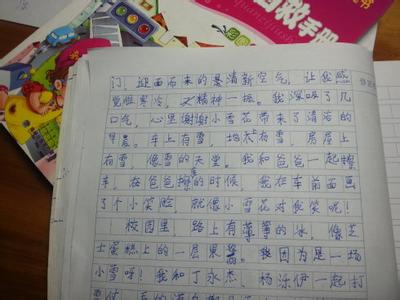 quanzijiushouce
自救手册
书
门，迎面而来的是清新空气，让我感
觉胜寒冷，又精神一振。我深吸了几
口气，心里谢谢小雪花带来了清洁的
早晨。车上有雪，地衣有雪，房屋上
有雪，像雪的天堂。我和爸爸一起擦
车，在爸爸擦的时候，我在车前面画
了个小笑脸，就像小雪花对我笑呢！
校园里，路上有薄薄的冰，像芝
士蛋糕上的一层果酱。我因为是一场
小雪呀！我和丁永杰，杨泺伊一起打